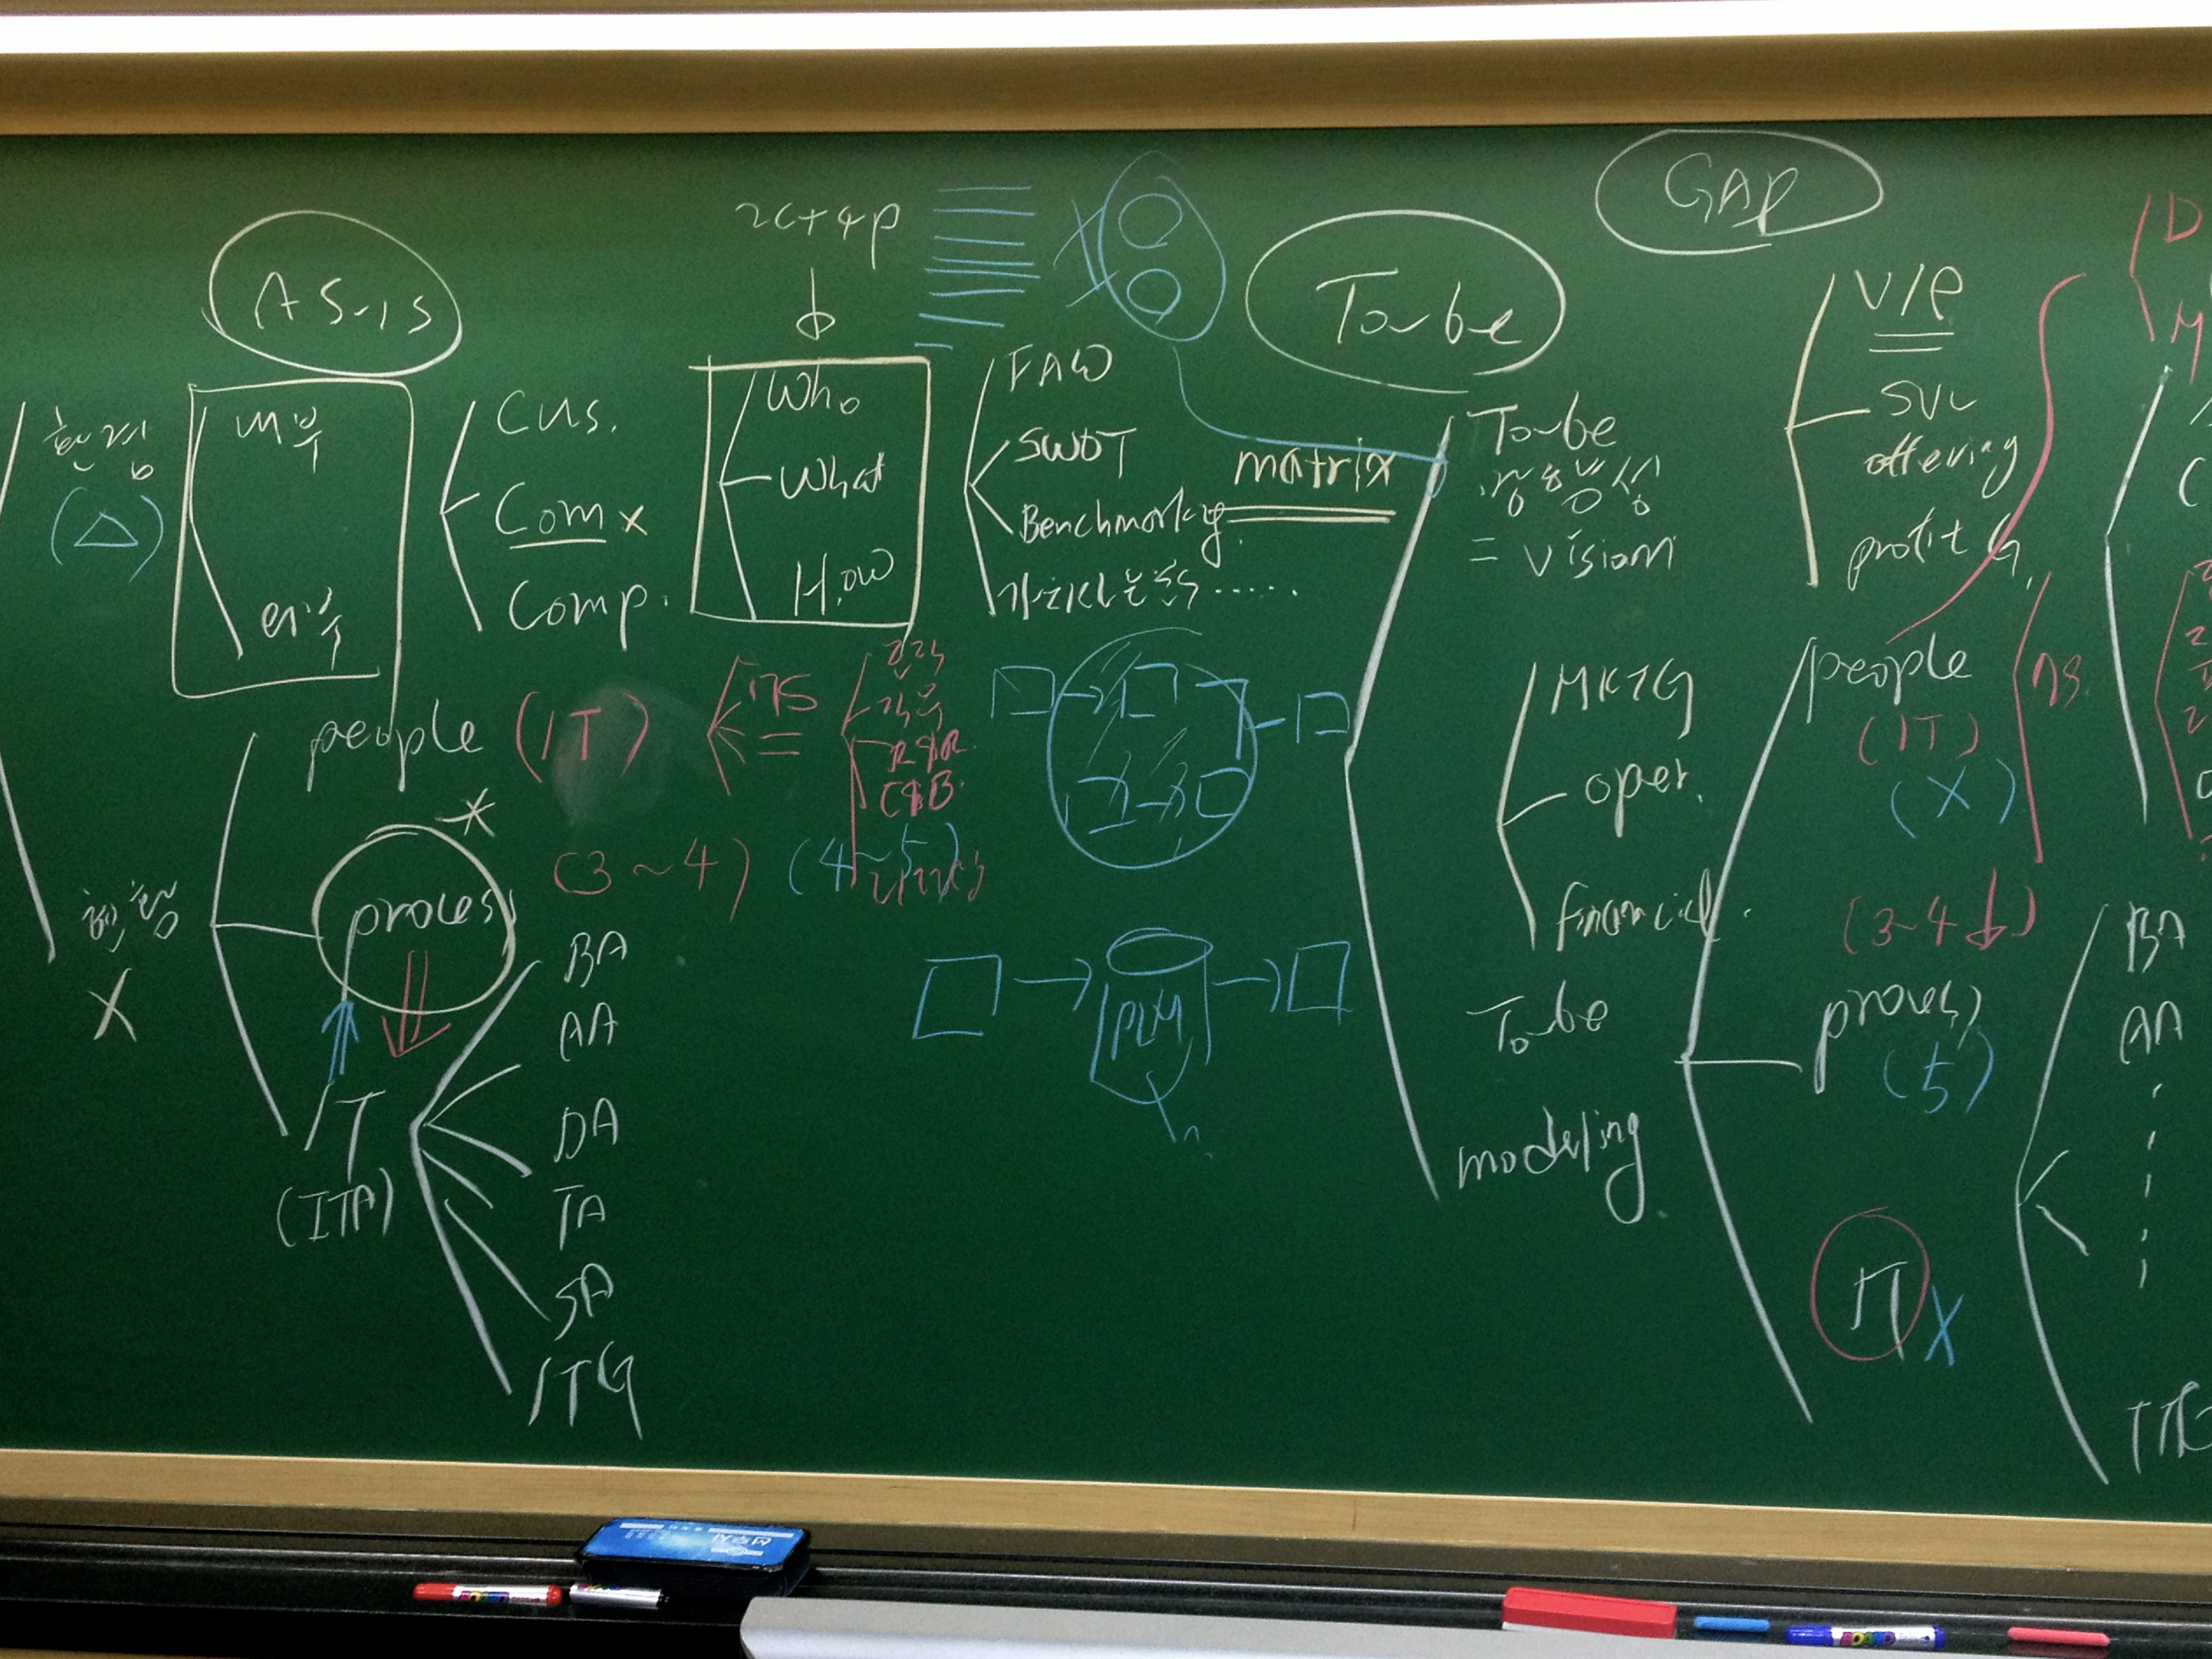 AS-IS
2C+4P
To-be
GAP
환경
내부
외부
Cus.
Com x
Comp.
Who
What
How
FAW
SWOT
Benchmarking
matrix
To-be
= Vision
V/P
SVC
offering
profit G.
people
(IT)
7S
R&R
C&B
(3~4)
(4~5)
process
X
IT
(ITA)
BA
AA
DA
TA
SA
ITG
PLM
MKTG
oper.
financial.
To-be
modeling
people
(IT)
(X)
7S
(3~4↓)
process
(5)
IT X
D
M
BA
AA